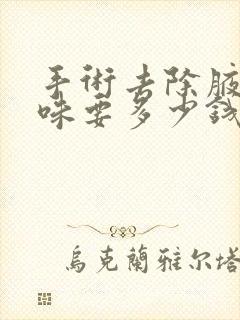 手術去除腋
味要多少錢
烏克蘭雅尔塔